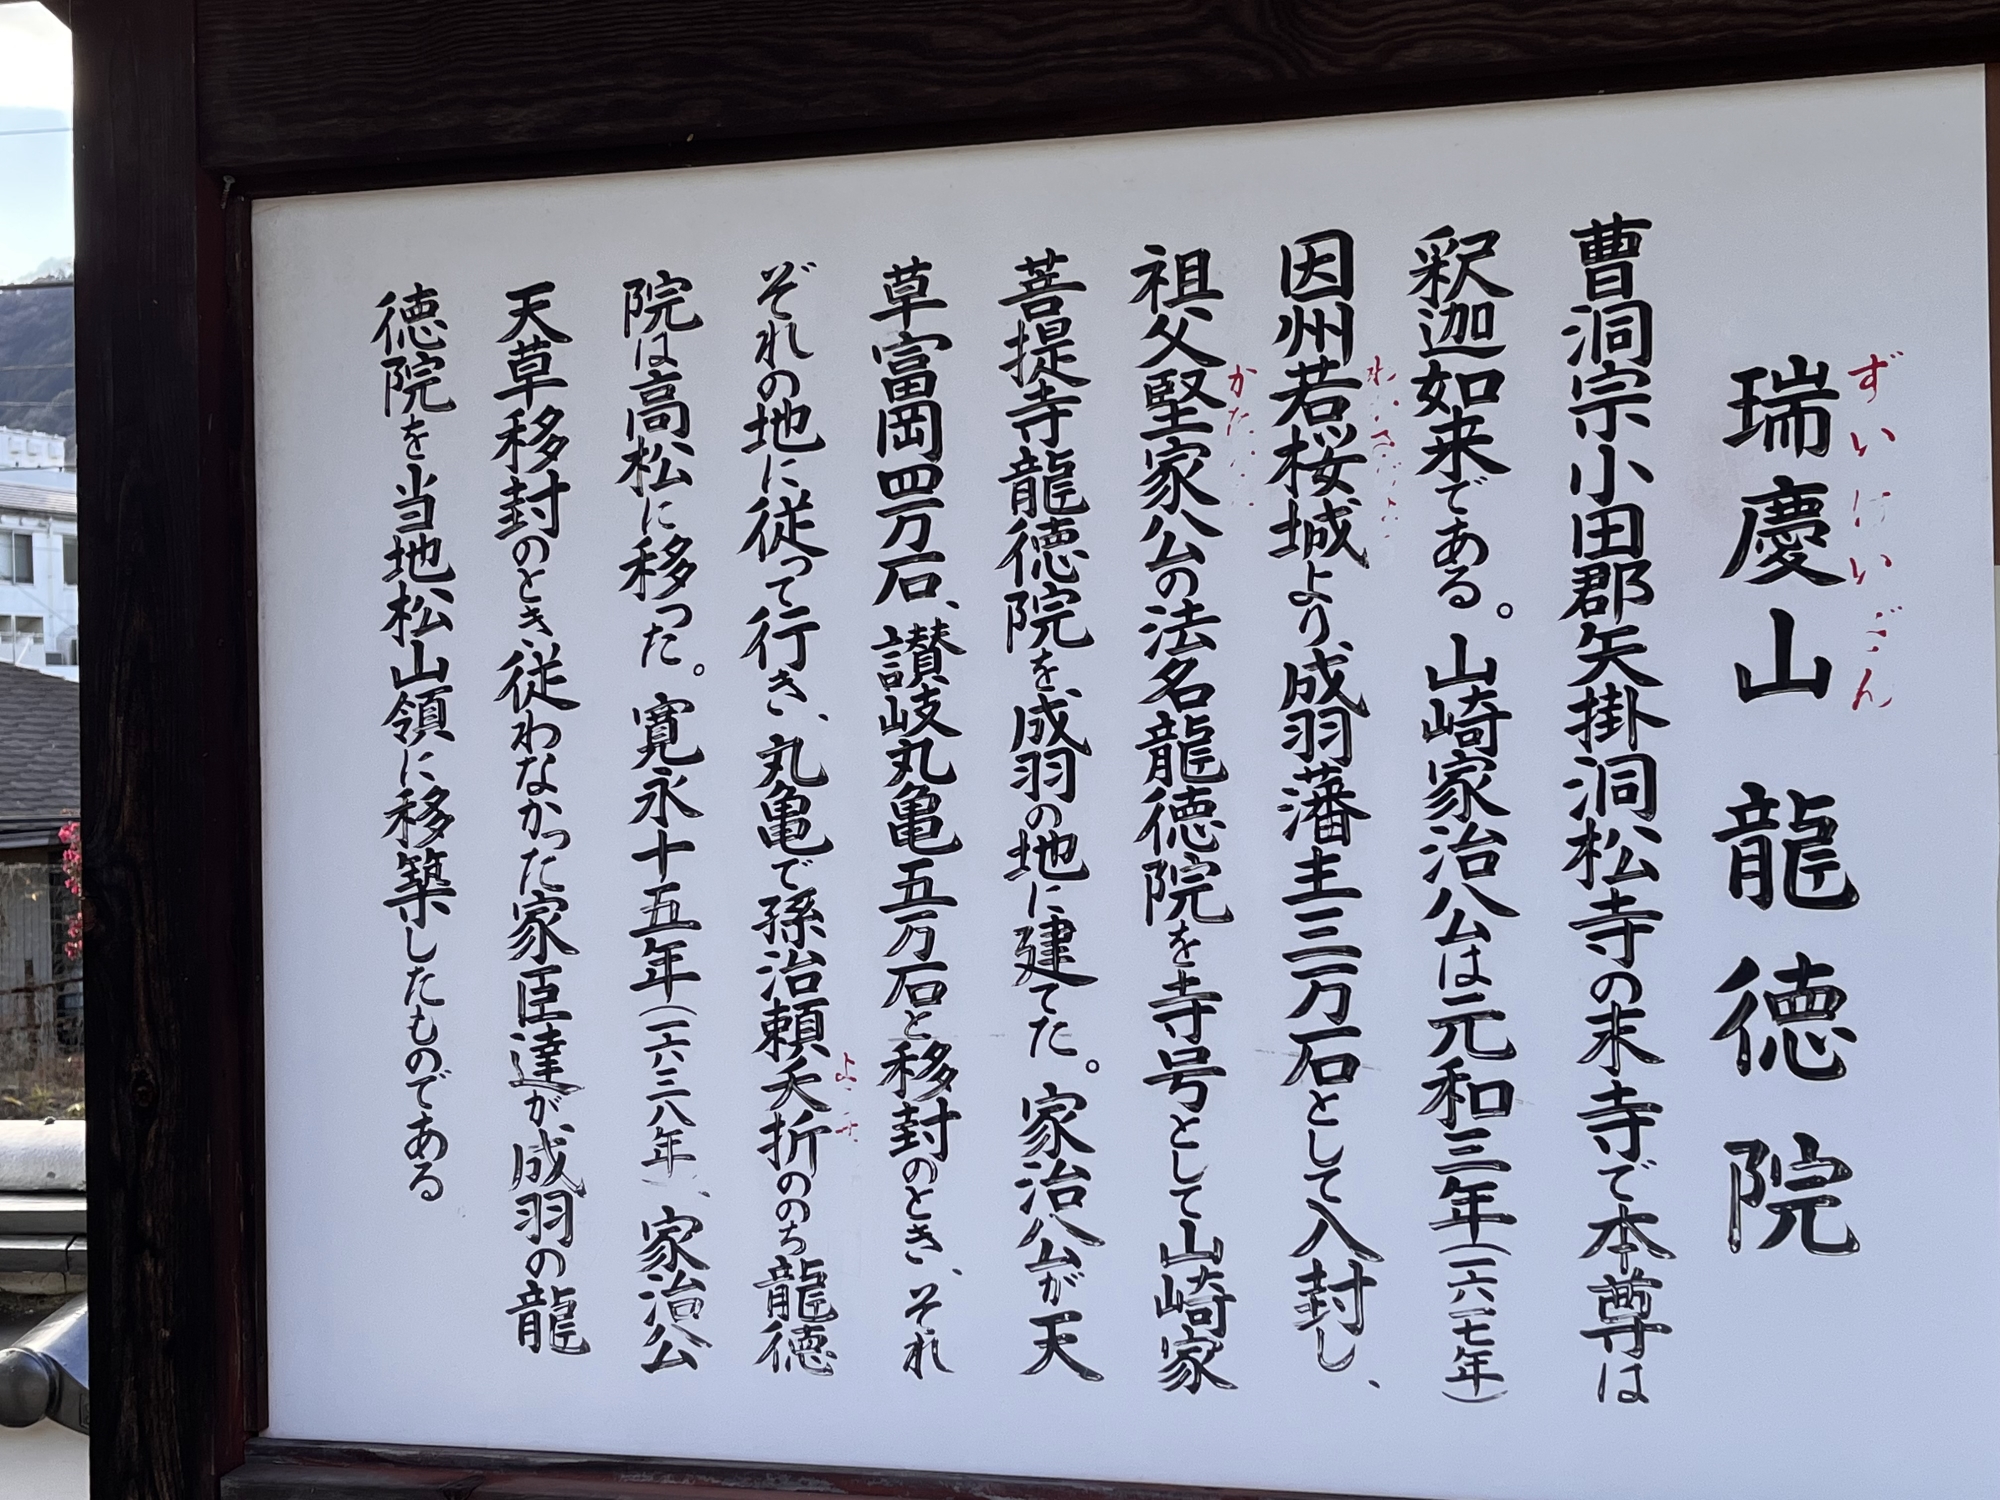 瑞慶山 龍徳院
ずいけいざん
曹洞宗小田郡矢掛洞松寺の末寺で本尊は
釈迦如来である。山崎家治公は元和三年(一六一七年)
因州若桜城より、成羽藩主三万石として入封し、
祖父堅家公の法名龍徳院を寺号として山崎家
菩提寺龍徳院を、成羽の地に建てた。家治公が天
草富岡四万石、讃岐丸亀五万石と移封のとき、それ
ぞれの地に従って行き、丸亀で孫治頼夭折ののち龍徳
院は高松に移った。寛永十五年(一六三八年)、家治公
天草移封のとき、従わなかった家臣達が、成羽の龍
徳院を当地松山領に移築したものである